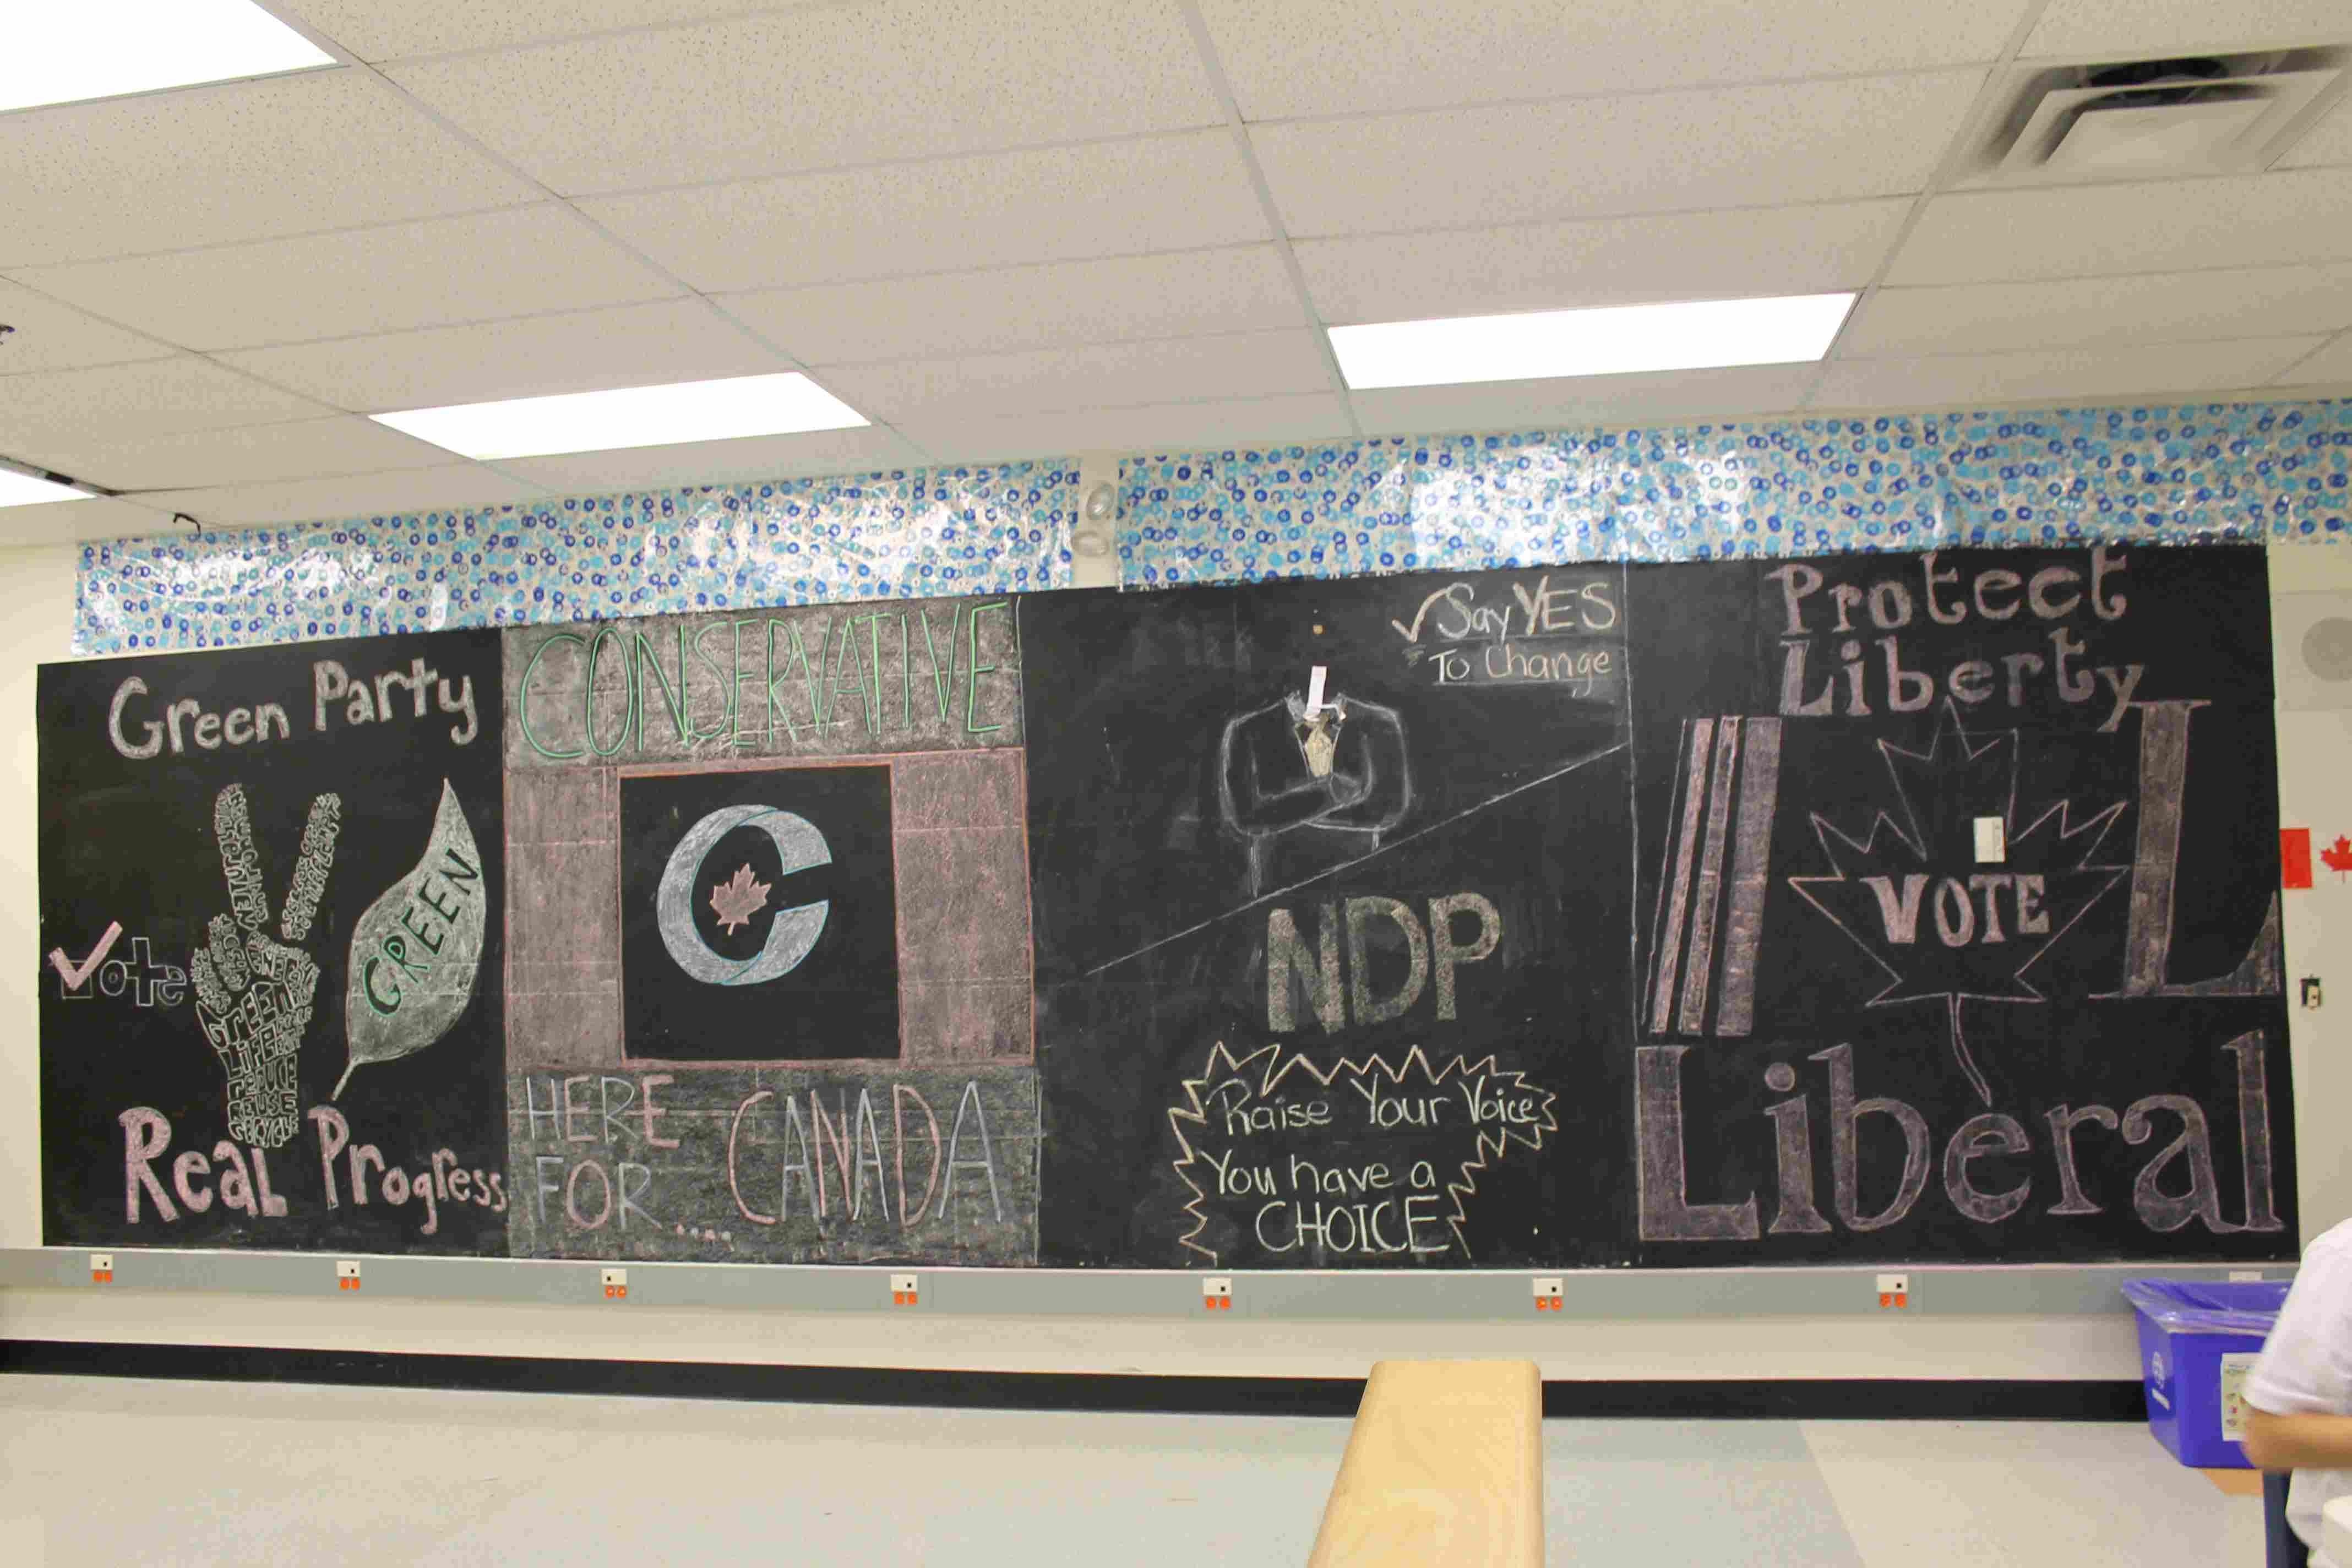 Green Party
Vote
GREEN
GREEN
LIFE
REDUCE
REUSE
RECYCLE
Real Progress
CONSERVATIVE
C
HERE
FOR.... CANADA
Say YES
To Change
NDP
Raise Your Voice
You have a
CHOICE
Protect
Liberty
L
VOTE
Liberal